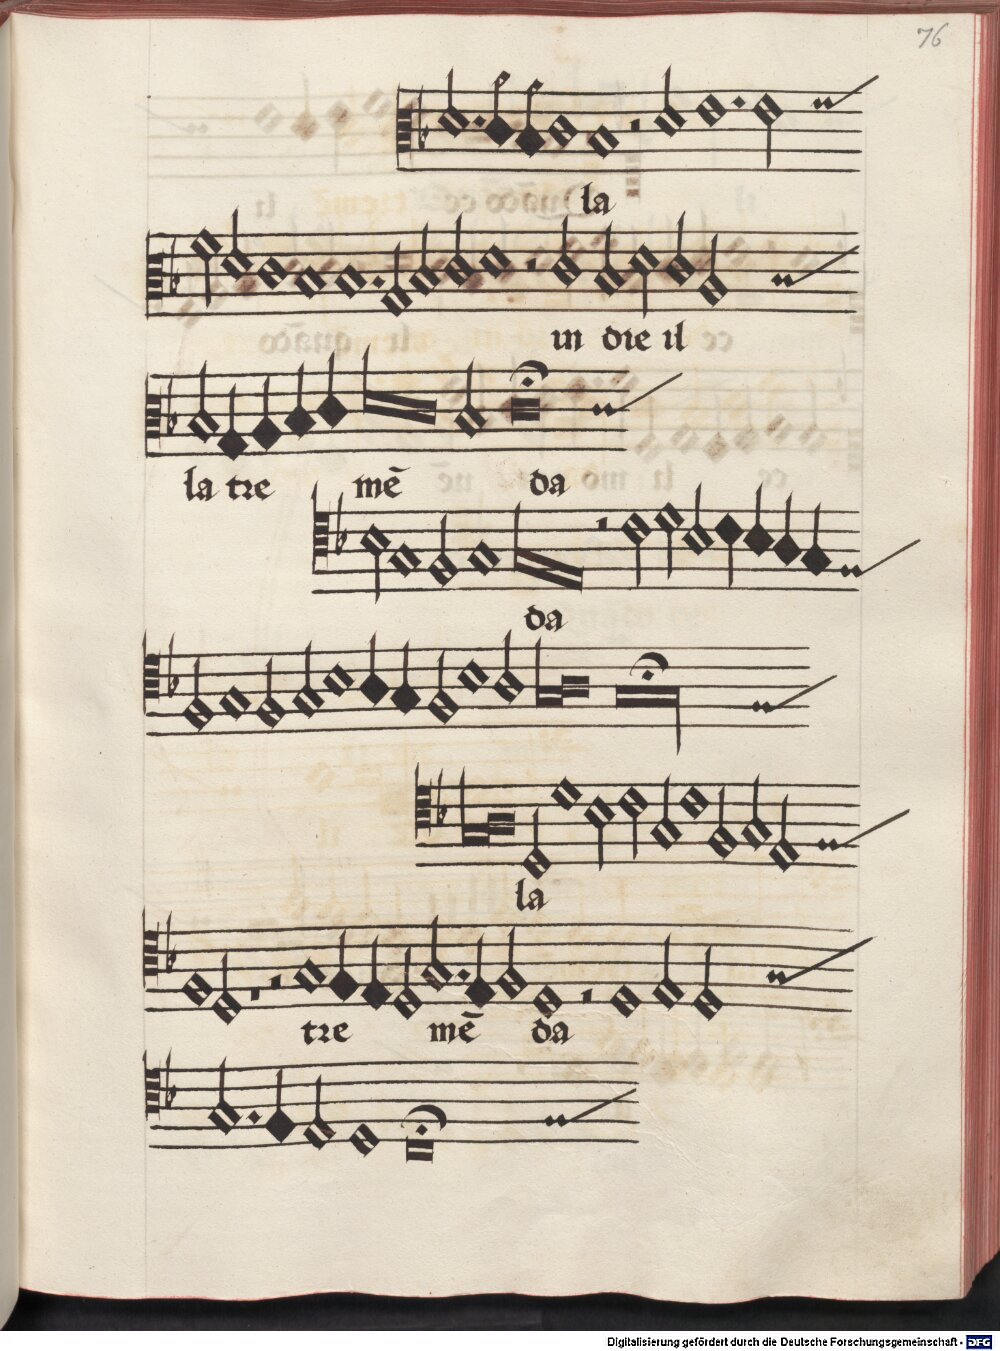 76
la
in die il
la tre mē da
da
la
tre mē da
Digitalisierung gefördert durch die Deutsche Forschungsgemeinschaft - DFG